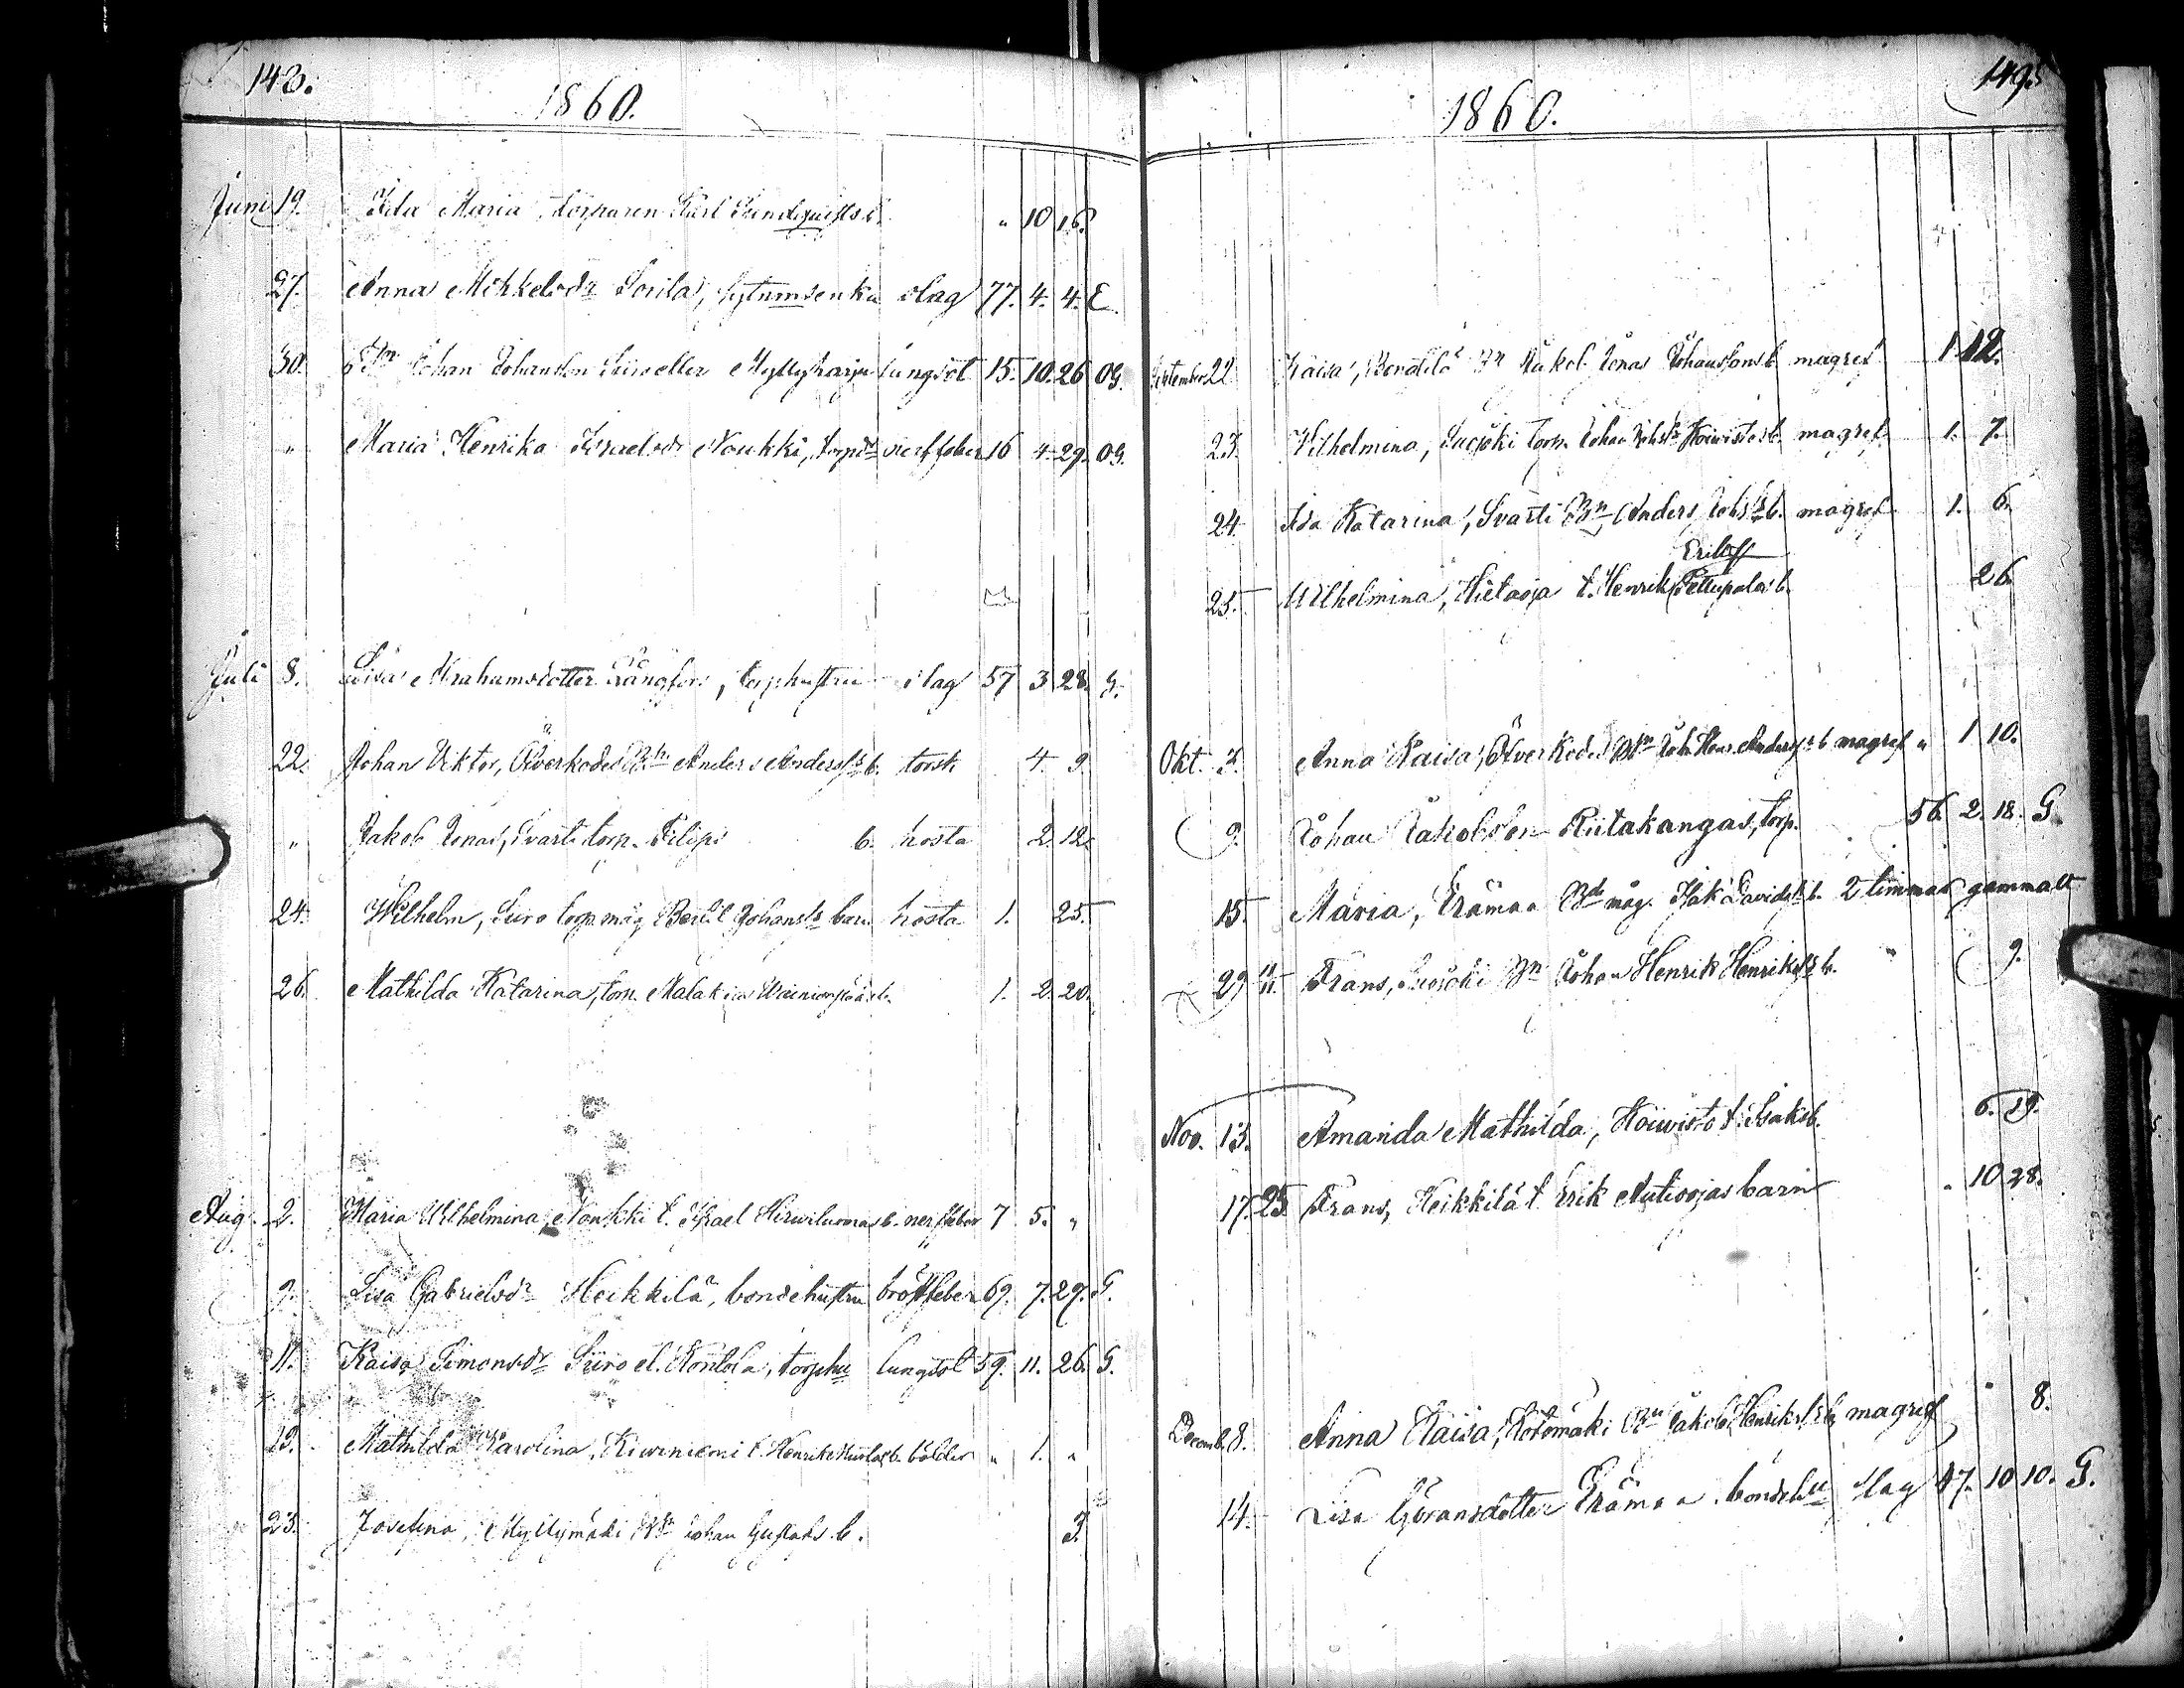 148.
1860.
Juni 19. Ida Maria, torparen Karl Sundquists b. " 10 16.
27. Anna Mikkelsdr Sorila, Sytnmsenka slag 77. 4. 4. E
30. Johan Johansson Siiro eller Myllyharju lungsot 15. 10. 26 OG.
" Maria Henrika Israelsdr Noukki, torpdr nerffeber 16 4. 29. OG.
Juli 8. Lisa Abrahamsdotter Långfors, torphustru slag 57 3 28. G.
22. Johan Viktor, Öfverkodes Bn Anders Anderss b. torsk 4. 9.
" Jakob Jonas, Svarti torp. Filips b. hosta 2. 12.
24. Wilhelm, Siiro torp. måg Bertil Johanss barn hosta 1. 25.
26. Mathilda Katarina, torp. Malakias Wainionpää b. 1. 2. 20.
Aug. 2. Maria Wilhelmina, Noukki t. Israel Hirwiluomas b. nerffeber 7 5. "
9. Lisa Gabrielsdr Heikkilä, bondehustru bröstfeber 69. 7. 29. G.
11. Kaisa Simonsdr Siiro el. Kontola, torphu lungsot 59. 11. 26. G.
Mathilda Karolina, Kiviniemi t. Henrik b. bölder " 1. "
23. Josefina, Myllymäki Bn Johan Gustafs b. 3.
149.
1860.
September 22. Kaisa, Bn Jakob Jonas Johanssons b. magref 1. 12.
23. Wilhelmina, Suojoki torp. Johan Johss Koivistos b. magref 1. 7.
24. Ida Katarina, Svarti Bn Anders Johss b. magref 1. 6.
25. Wilhelmina, Hietaoja t. Henrik b. 26.
Okt. 3. Anna Kaisa, Öfverkodes Bn Joh. Henr. Anderss b. magref " 1 10.
9. Johan Jakobsson Riitakangas, torp. 56. 2. 18. G.
15. Maria, Erämaa Bd måg Isak Davids b. 2 timmar gammalt
29 Frans, Suojoki Bn Johan Henrik Henrikss b. " 9.
Nov. 13. Amanda Mathilda, Koivisto t. Isaks b. 6. 19.
17. 25. Frans, Heikkilä t. Erik Autioojas barn " 10 28.
Decemb. 8. Anna Kaisa, Kotomäki Bn Jakob Henrikss b. magref " 8.
14. Lisa Göransdotter Erämaa bondehu slag 47. 10 10. G.